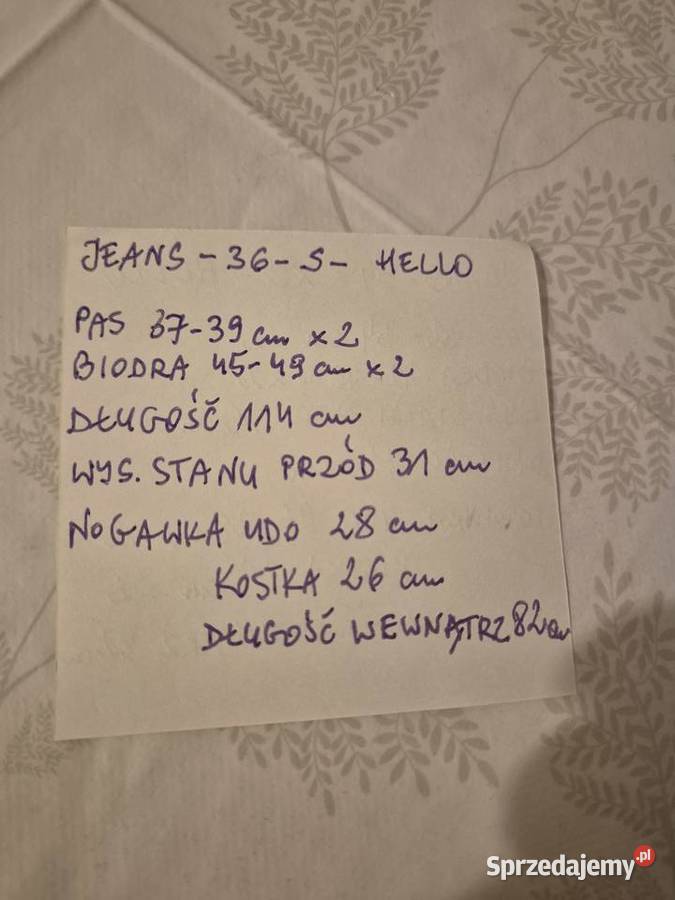 JEANS - 36 - S - HELLO
PAS 37-39 cm x 2
BIODRA 45-49 cm x 2
DŁUGOŚĆ 114 cm
WYS. STANU PRZÓD 31 cm
NOGAWKA UDO 28 cm
KOSTKA 26 cm
DŁUGOŚĆ WEWNĄTRZ 82 cm
Sprzedajemy.pl